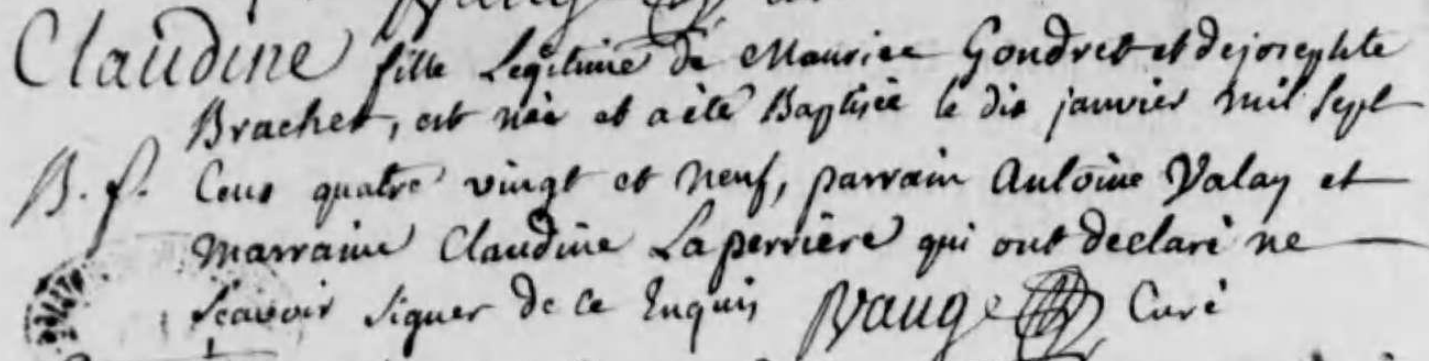 Claudine fille Legitime de Maurice Gondret et de josephte
Brachet, est née et a été Baptisée le dix janvier mil sept
B. f. Cens quatre vingt et neuf, parrain Antoine Valay et
Marraine Claudine Laperriere qui ont declaré ne
sçavoir signer de ce Enquis Vauge Curé